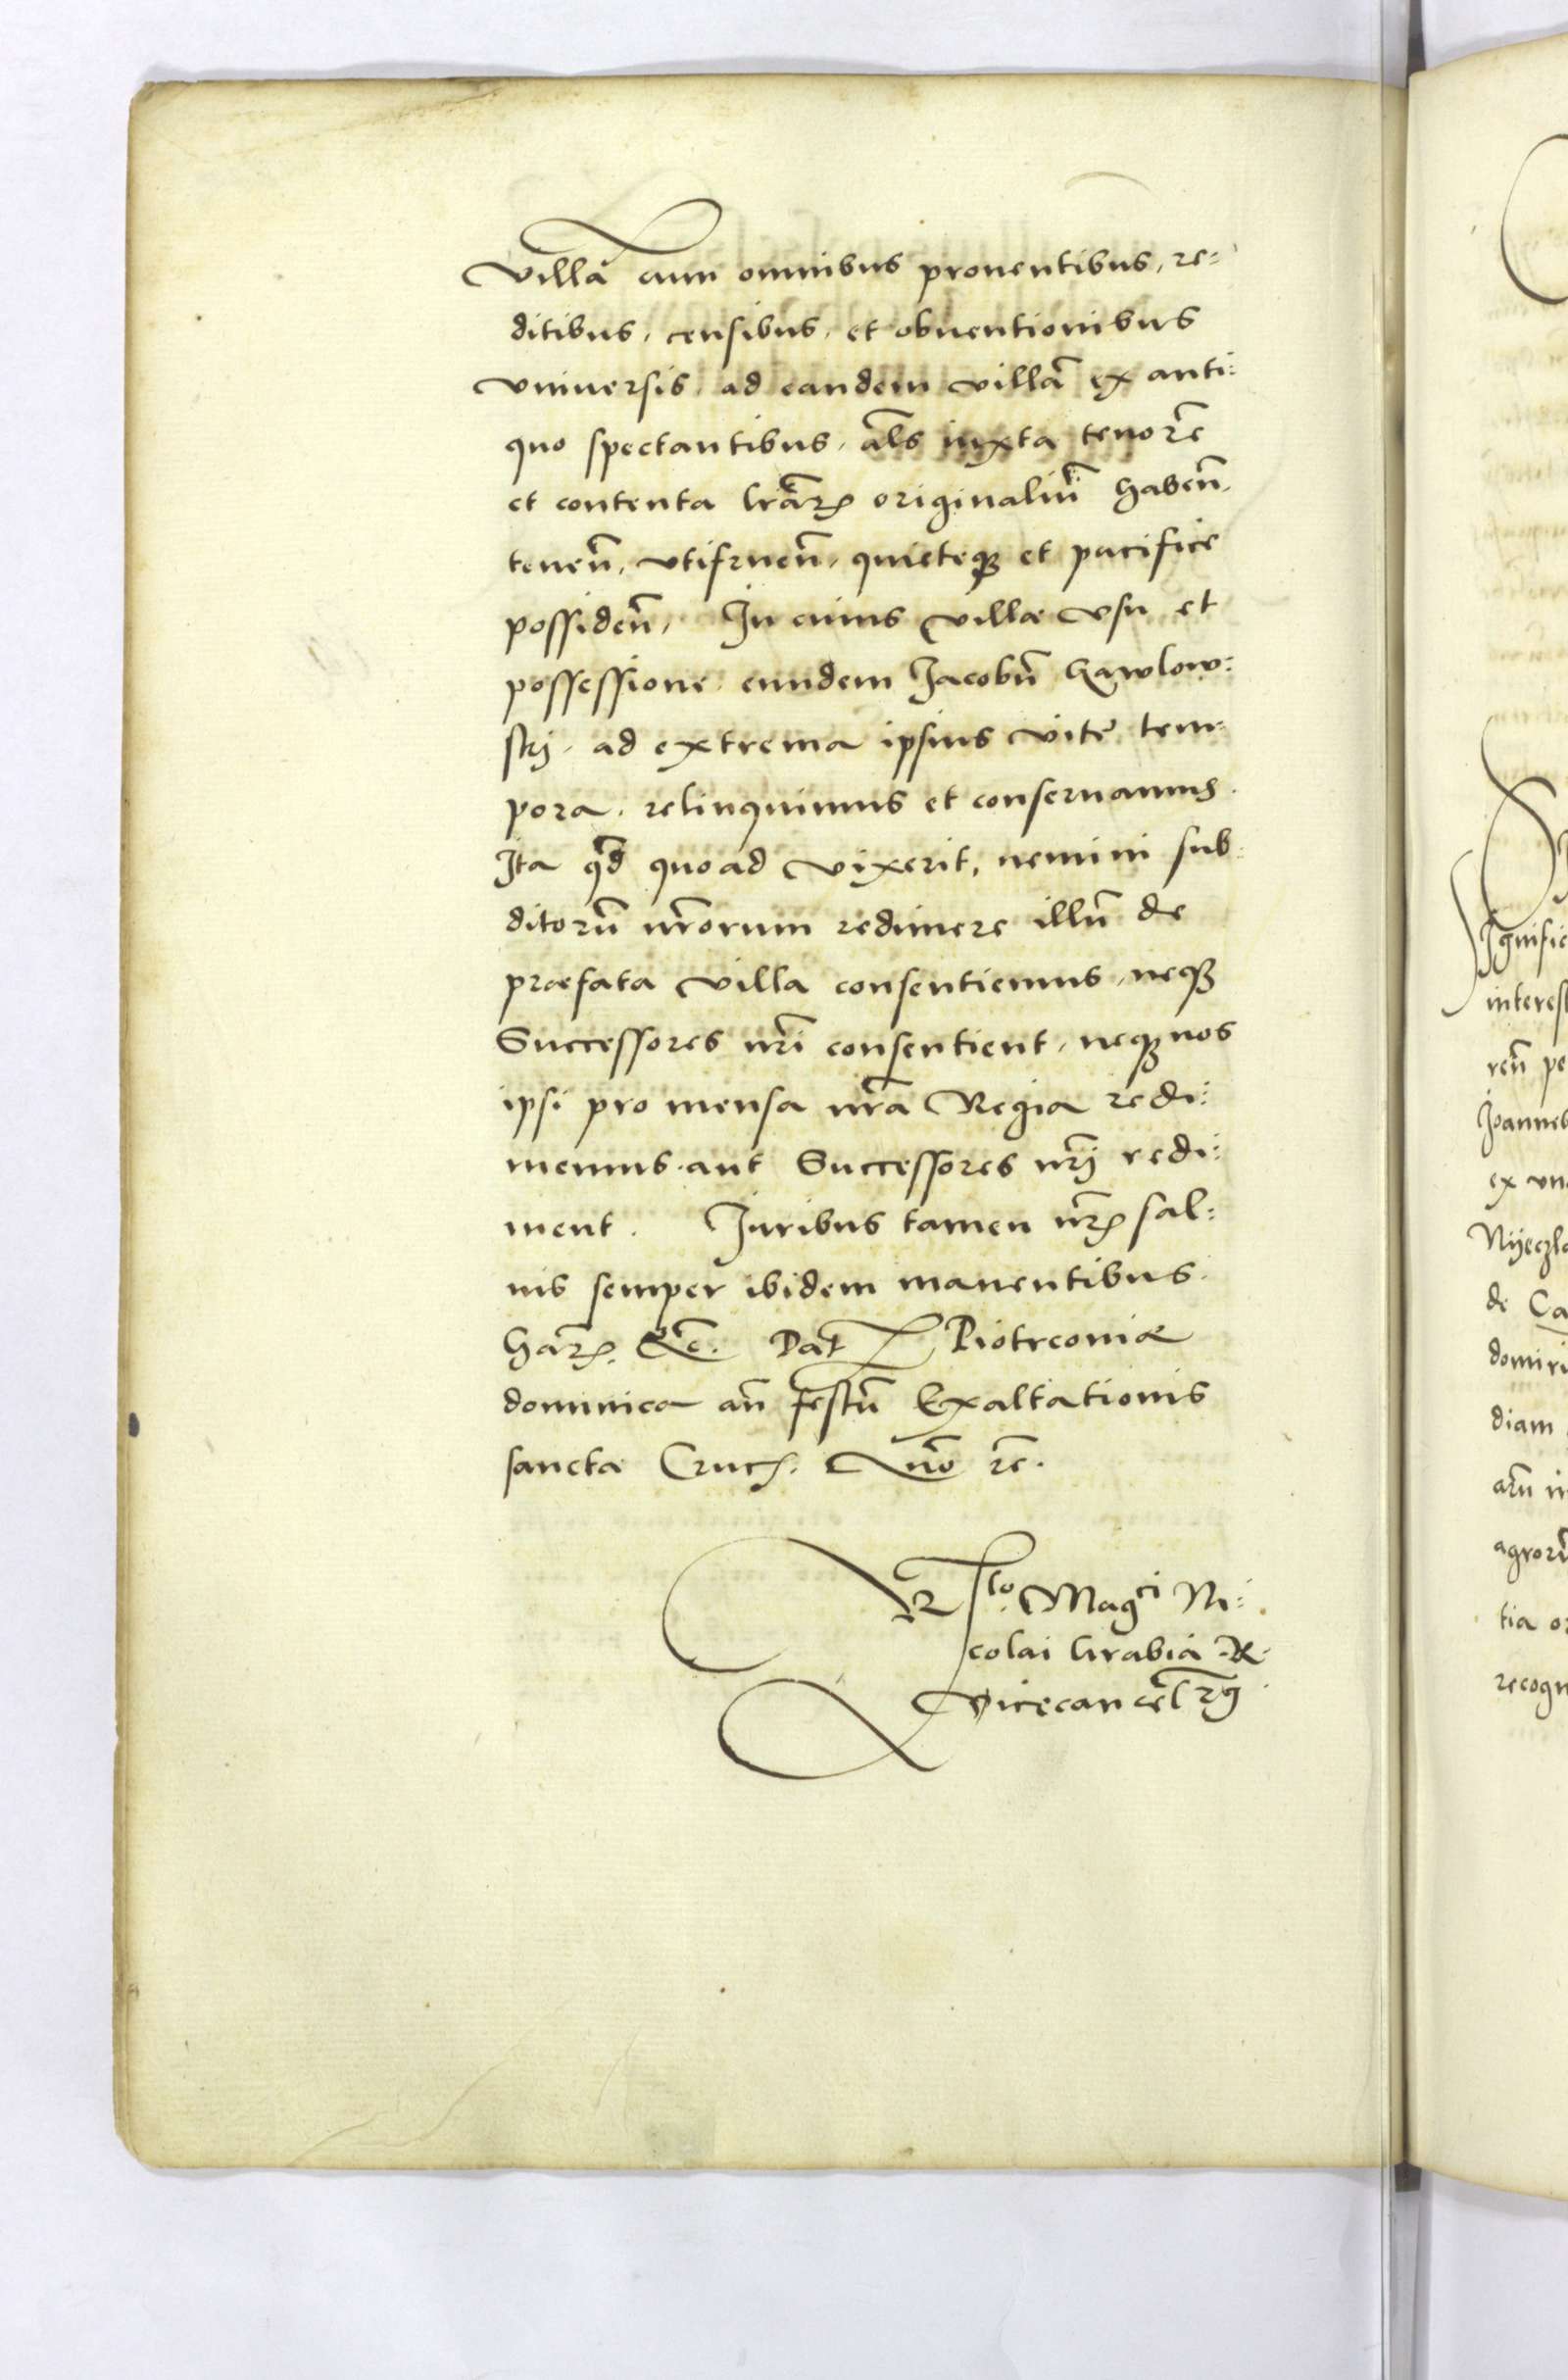 villā cum omnibus prouentibus, re=
ditibus, censibus, et obuentionibus
vniuersis, ad eandem villā ex anti=
quo spectantibus, als̄ iuxta tenorē
et contenta lrāꝝ originaliū habeñ,
teneñ, vtifrueñ, quieteqꝫ et pacifice
possideñ, In cuius villæ vsu et
possessione eundem Jacobū Gawlow=
ski, ad extrema ipsius vitę tem=
pora, relinquimus et conseruamus.
Ita qd̄ quoad vixerit, nemini sub=
ditorū nr̄orum redimere illū de
præfata villa consentiemus, neqꝫ
Successores nr̄i consentient, neqꝫ nos
ipsi pro mensa nr̄a Regia redi=
memus, aut Successores nr̄j redi=
ment. Juribus tamen nr̄ꝝ sal=
uis semper ibidem manentibus.
Harꝝ. &c̄. Dat Piotrcouiæ
dominica añ festū Exaltationis
sanctæ Cruc̨. Año
Rᵗᵒ Magᶜⁱ Ni=
colai Grabia R.
Vicecancel̄ Rg̃
de Ca
diam
tia